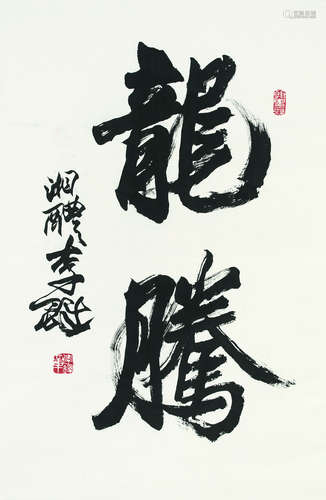 龍
騰
湘醴李鐸